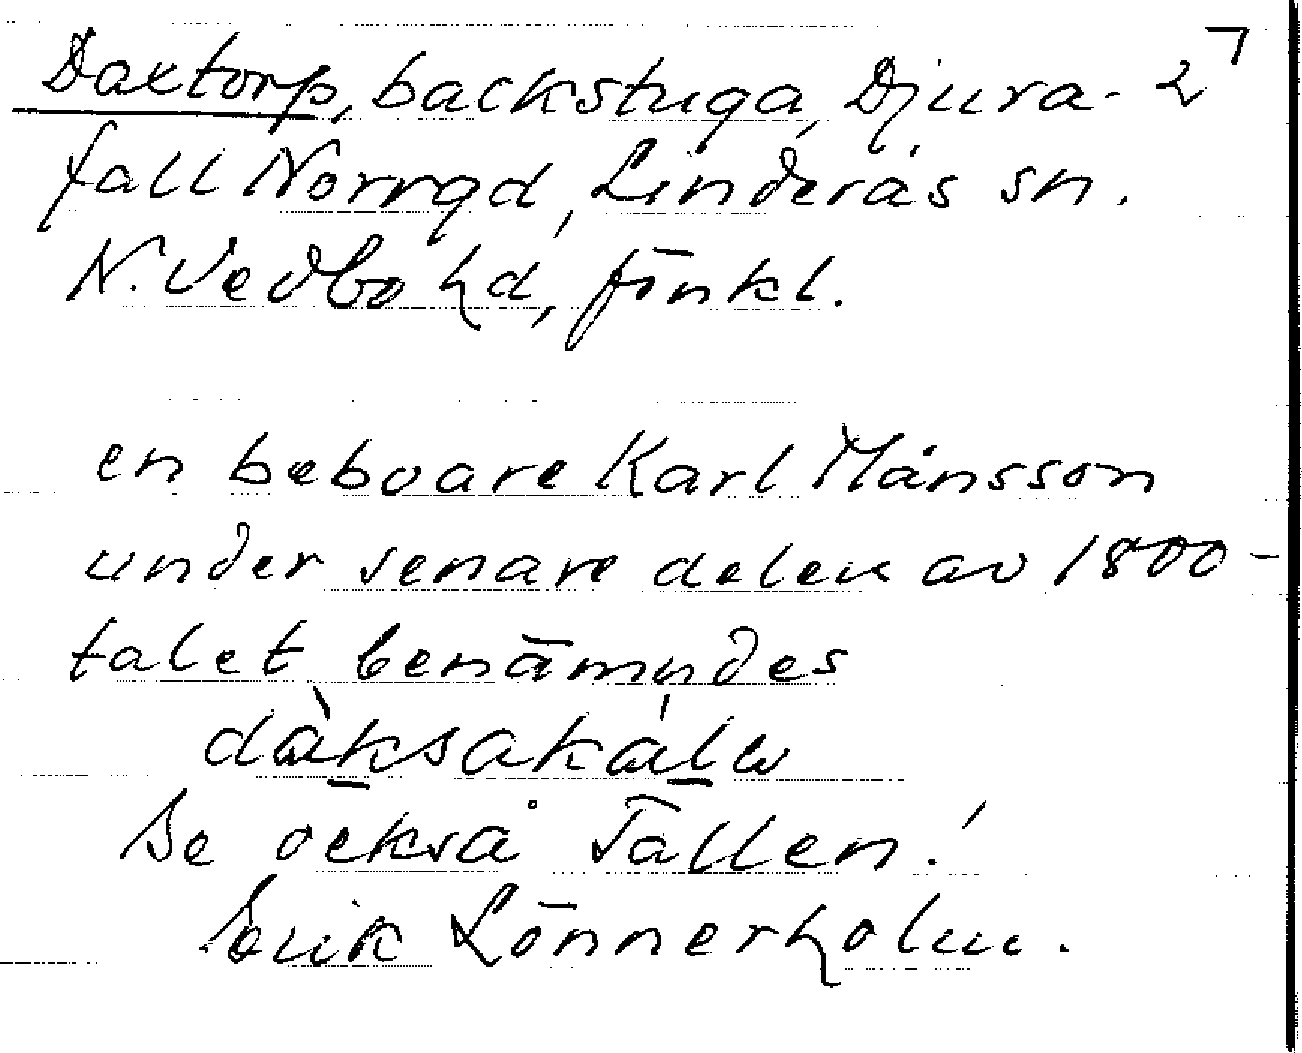 Daxtorp, backstuga, Djura- 27
fall Norrgd, Linderås sn.
N. Vedbo hd, Jönkl.
en beboare Karl Månsson
under senare delen av 1800-
talet benämndes
dàksakálw
Se också Tallen!
Erik Lönnerholm.